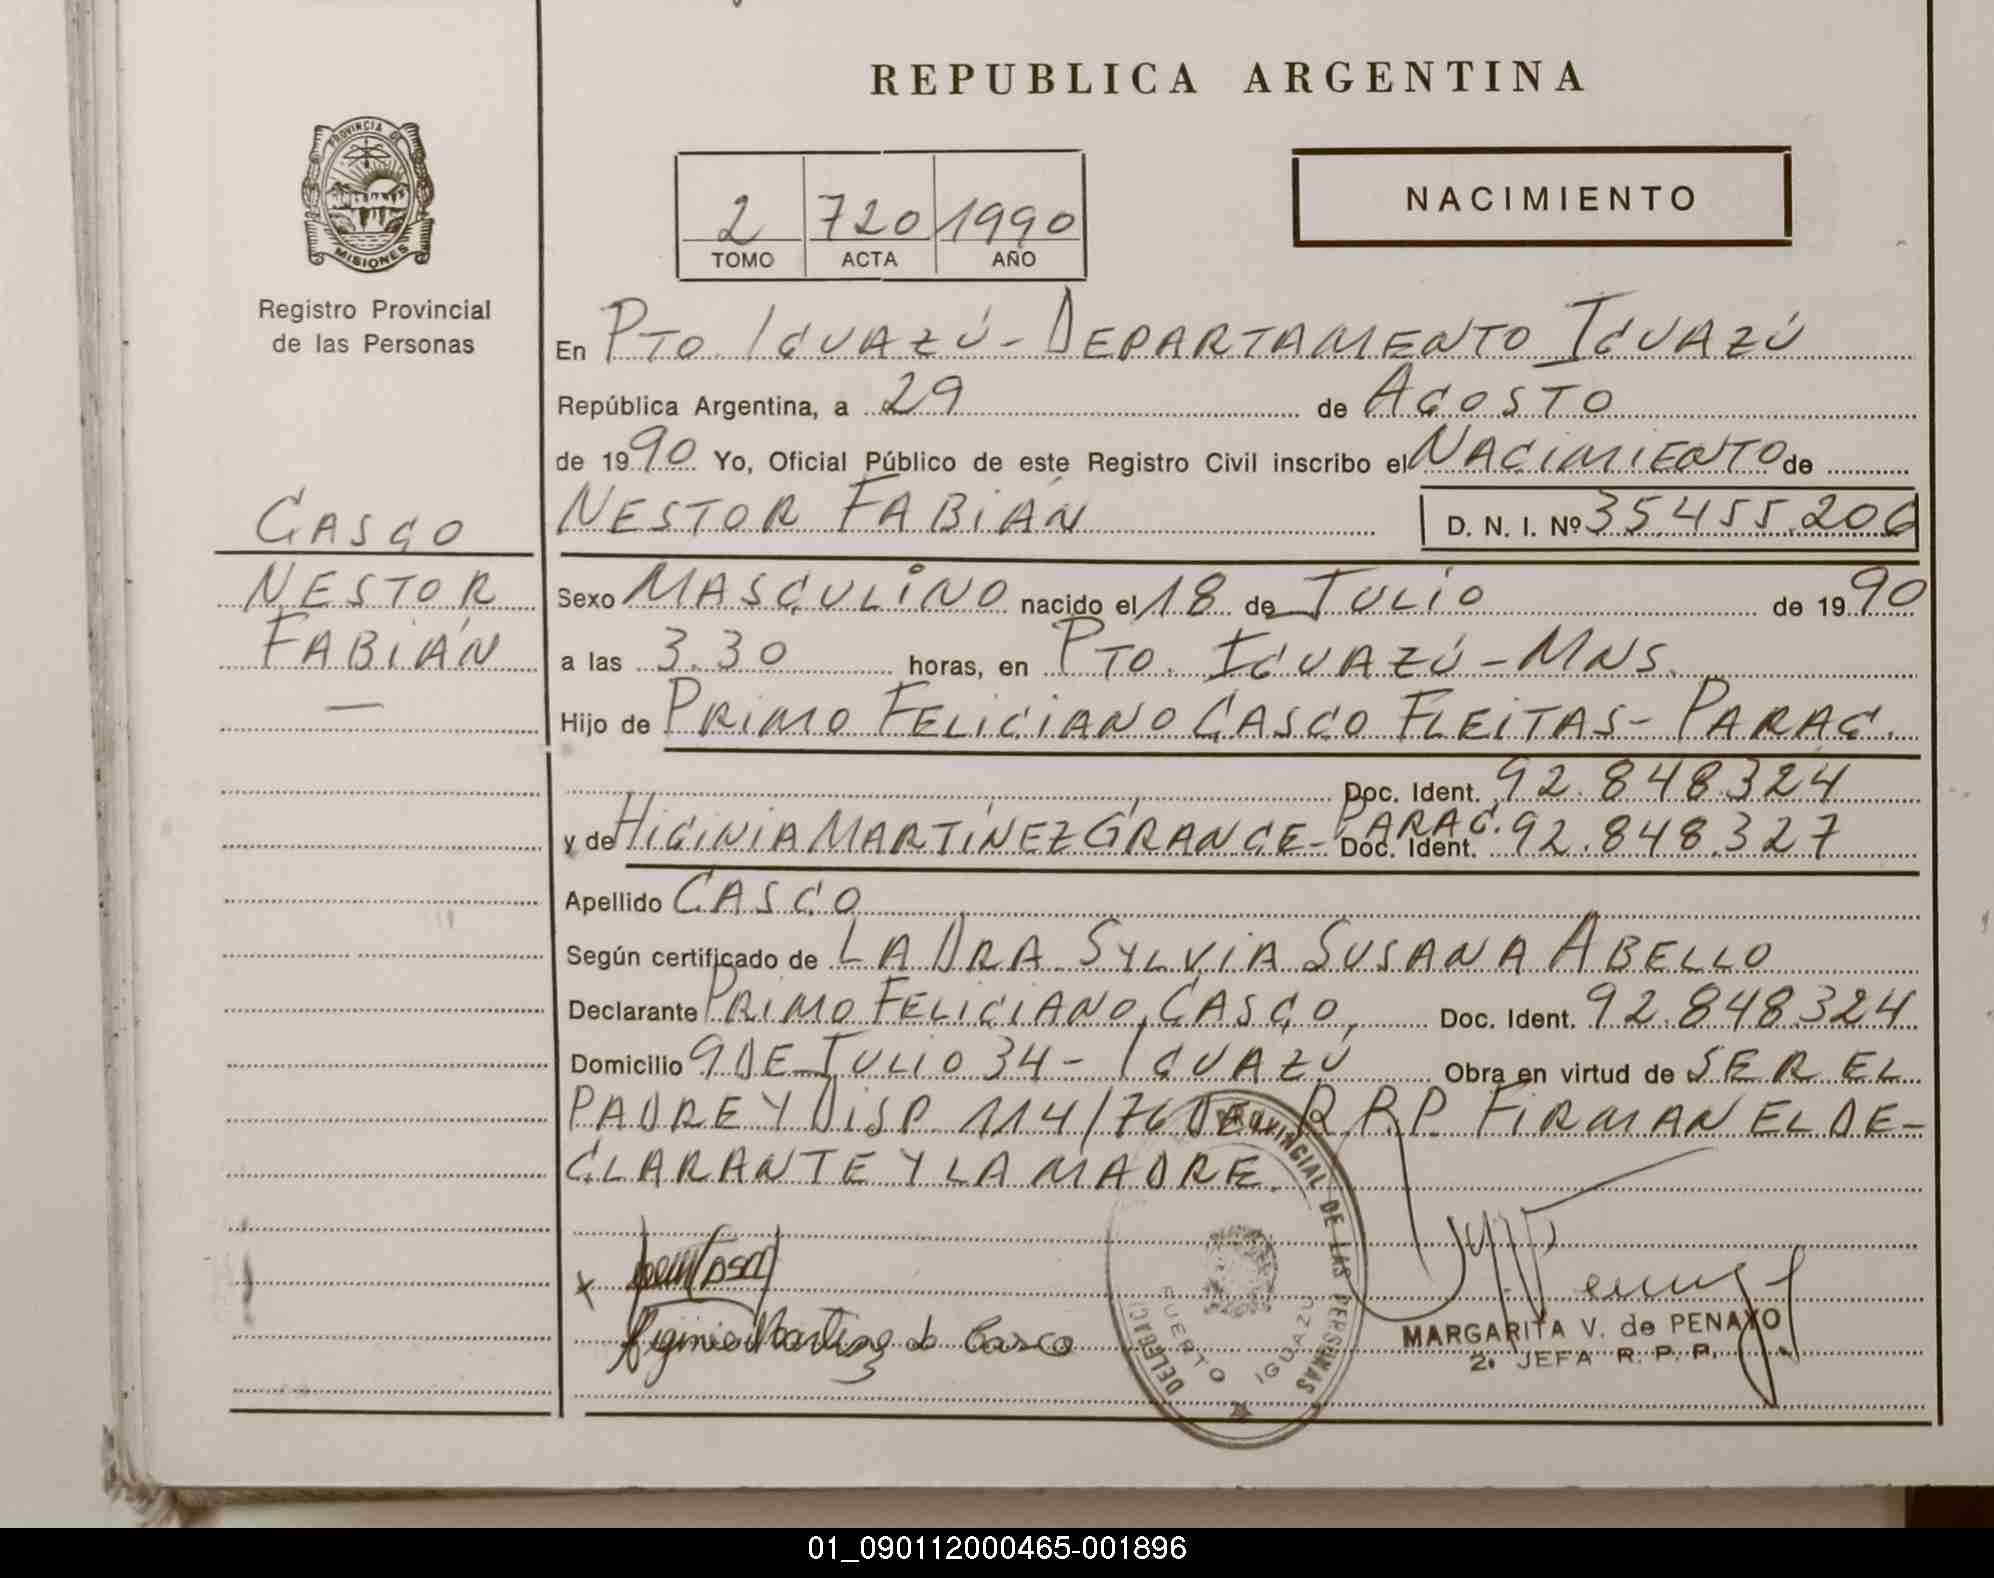 REPUBLICA ARGENTINA
PROVINCIA DE
MISIONES
NACIMIENTO
2 720 1990
TOMO ACTA AÑO
Registro Provincial
de las Personas
En PTO. IGUAZÚ - DEPARTAMENTO IGUAZÚ
República Argentina, a 29 de AGOSTO
de 1990 Yo, Oficial Público de este Registro Civil inscribo el NACIMIENTO de
CASCO
NESTOR FABIÁN D. N. I. Nº 35.455.206
NESTOR
FABIÁN
—
Sexo MASCULINO nacido el 18 de JULIO de 1990
a las 3.30 horas, en PTO. IGUAZÚ - MNS.
Hijo de PRIMO FELICIANO CASCO FLEITAS - PARAG.
Doc. Ident. 92.848.324
y de HIGINIA MARTÍNEZ GRANGE - PARAG. Doc. Ident. 92.848.327
Apellido CASCO
Según certificado de LA DRA SYLVIA SUSANA ABELLO
Declarante PRIMO FELICIANO CASCO, Doc. Ident. 92.848.324
Domicilio 9 DE JULIO 34 - IGUAZÚ Obra en virtud de SER EL
PADRE Y DISP. 114/76 DE R.P.P. FIRMAN EL DE-
CLARANTE Y LA MADRE.
Higinia Martinez de Casco
PROVINCIAL DE LAS PERSONAS
PUERTO IGUAZU
MARGARITA V. de PENAYO
2ª JEFA R. P. P.
01_090112000465-001896